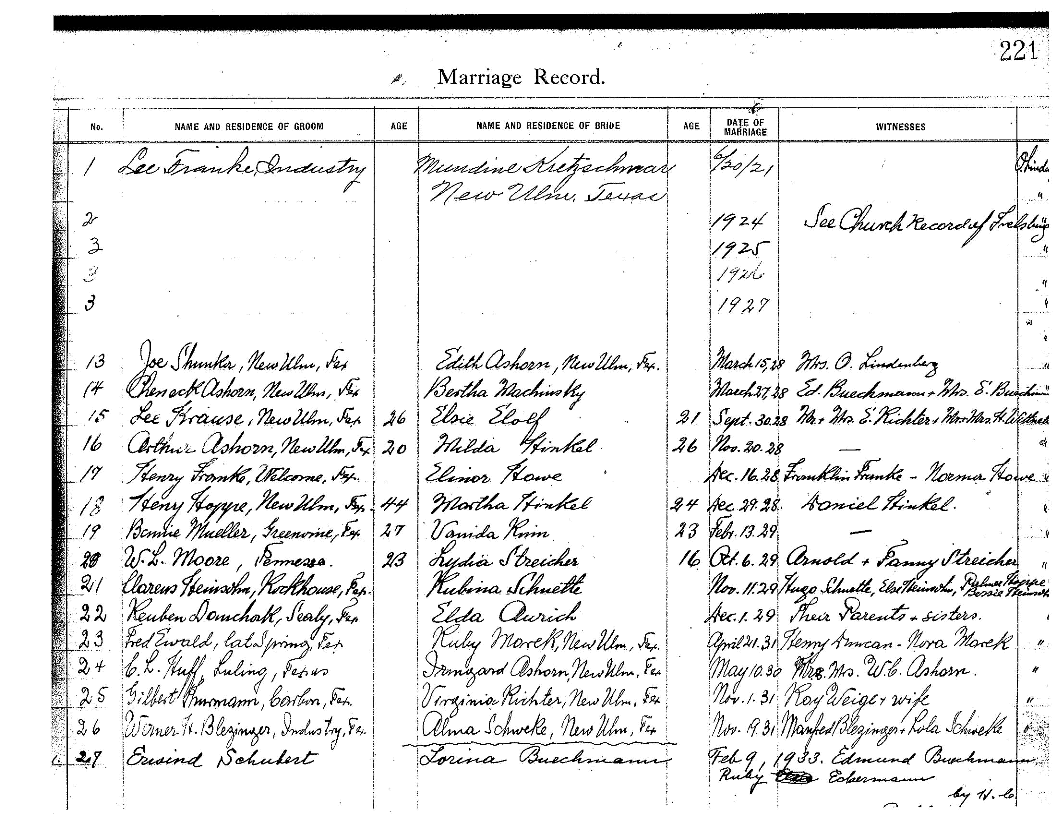 221
Marriage Record.
No. NAME AND RESIDENCE OF GROOM AGE NAME AND RESIDENCE OF BRIDE AGE DATE OF MARRIAGE WITNESSES
1 Lee Franke, Industry Mundine Kretzschmar 6/30/21
New Ulm, Texas "
2 1924 See Church Record of Frelsburg
3 1925 "
3 1926 "
3 1927 "
13 Joe Shunker, New Ulm, Tex Edith Ashorn, New Ulm, Tex. March 15, 28 Mrs. O. Lindenberg
14 Ashorn, New Ulm, Tex Bertha Machinsky March 27, 28 Ed. Buechmann + Mrs. E.
15 Lee Krause, New Ulm, Tex 26 Elsie Elolf 21 Sept. 30 28 Mr + Mrs E. Richter + Mr + Mrs. H.
16 Arthur Ashorn, New Ulm, Tex 20 Milda Hinkel 26 Nov. 20. 28 —
17 Henry Franke, Welcome, Tex. Elinor Howe Dec. 16. 28 Franklin Franke - Norma Howe "
18 Heny Hoppe, New Ulm, Tex. 44 Martha Hinkel 24 Dec 29. 28. Daniel Hinkel.
19 Bennie Mueller, Greenvine, Tex 27 Vanida 23 Feb. 13. 29 —
20 W. L. Moore, Tennessea. 23 Lydia Streicher 16 Oct. 6. 29 Arnold + Fanny Streicher "
21 Clarens Heinsohn, Rockhouse, Tex. Rubina Schuette Nov. 11. 29 Hugo Schuette, Heinsohn,
22 Reuben Domchak, Sealy, Tex Elda Aurich Dec. 1. 29 Their Parents + sisters. "
23 Fred Ewald, Cat Spring, Tex Ruby Marek, New Ulm, Tex. April 21. 31 Henny Duncan - Nora Marek "
24 C. L. Huff, Luling, Texas Irmgard Ashorn, New Ulm, Tex May 10. 30 Mrs. W. C. Ashorn. "
25 Gilbert, Carbon, Tex. Virginia Richter, New Ulm, Tex. Nov. 1. 31 Roy Weige + wife "
26 Werner H. Blezinger, Industry, Tex Alma Schweke, New Ulm, Tex Nov. 9. 31 Manfred Blezinger + Lola Schweke "
27 Erisind Schubert Lorina Buechmann Feb 9, 1933. Edmund Buechmann
Ruby Eckermann
by H. C.